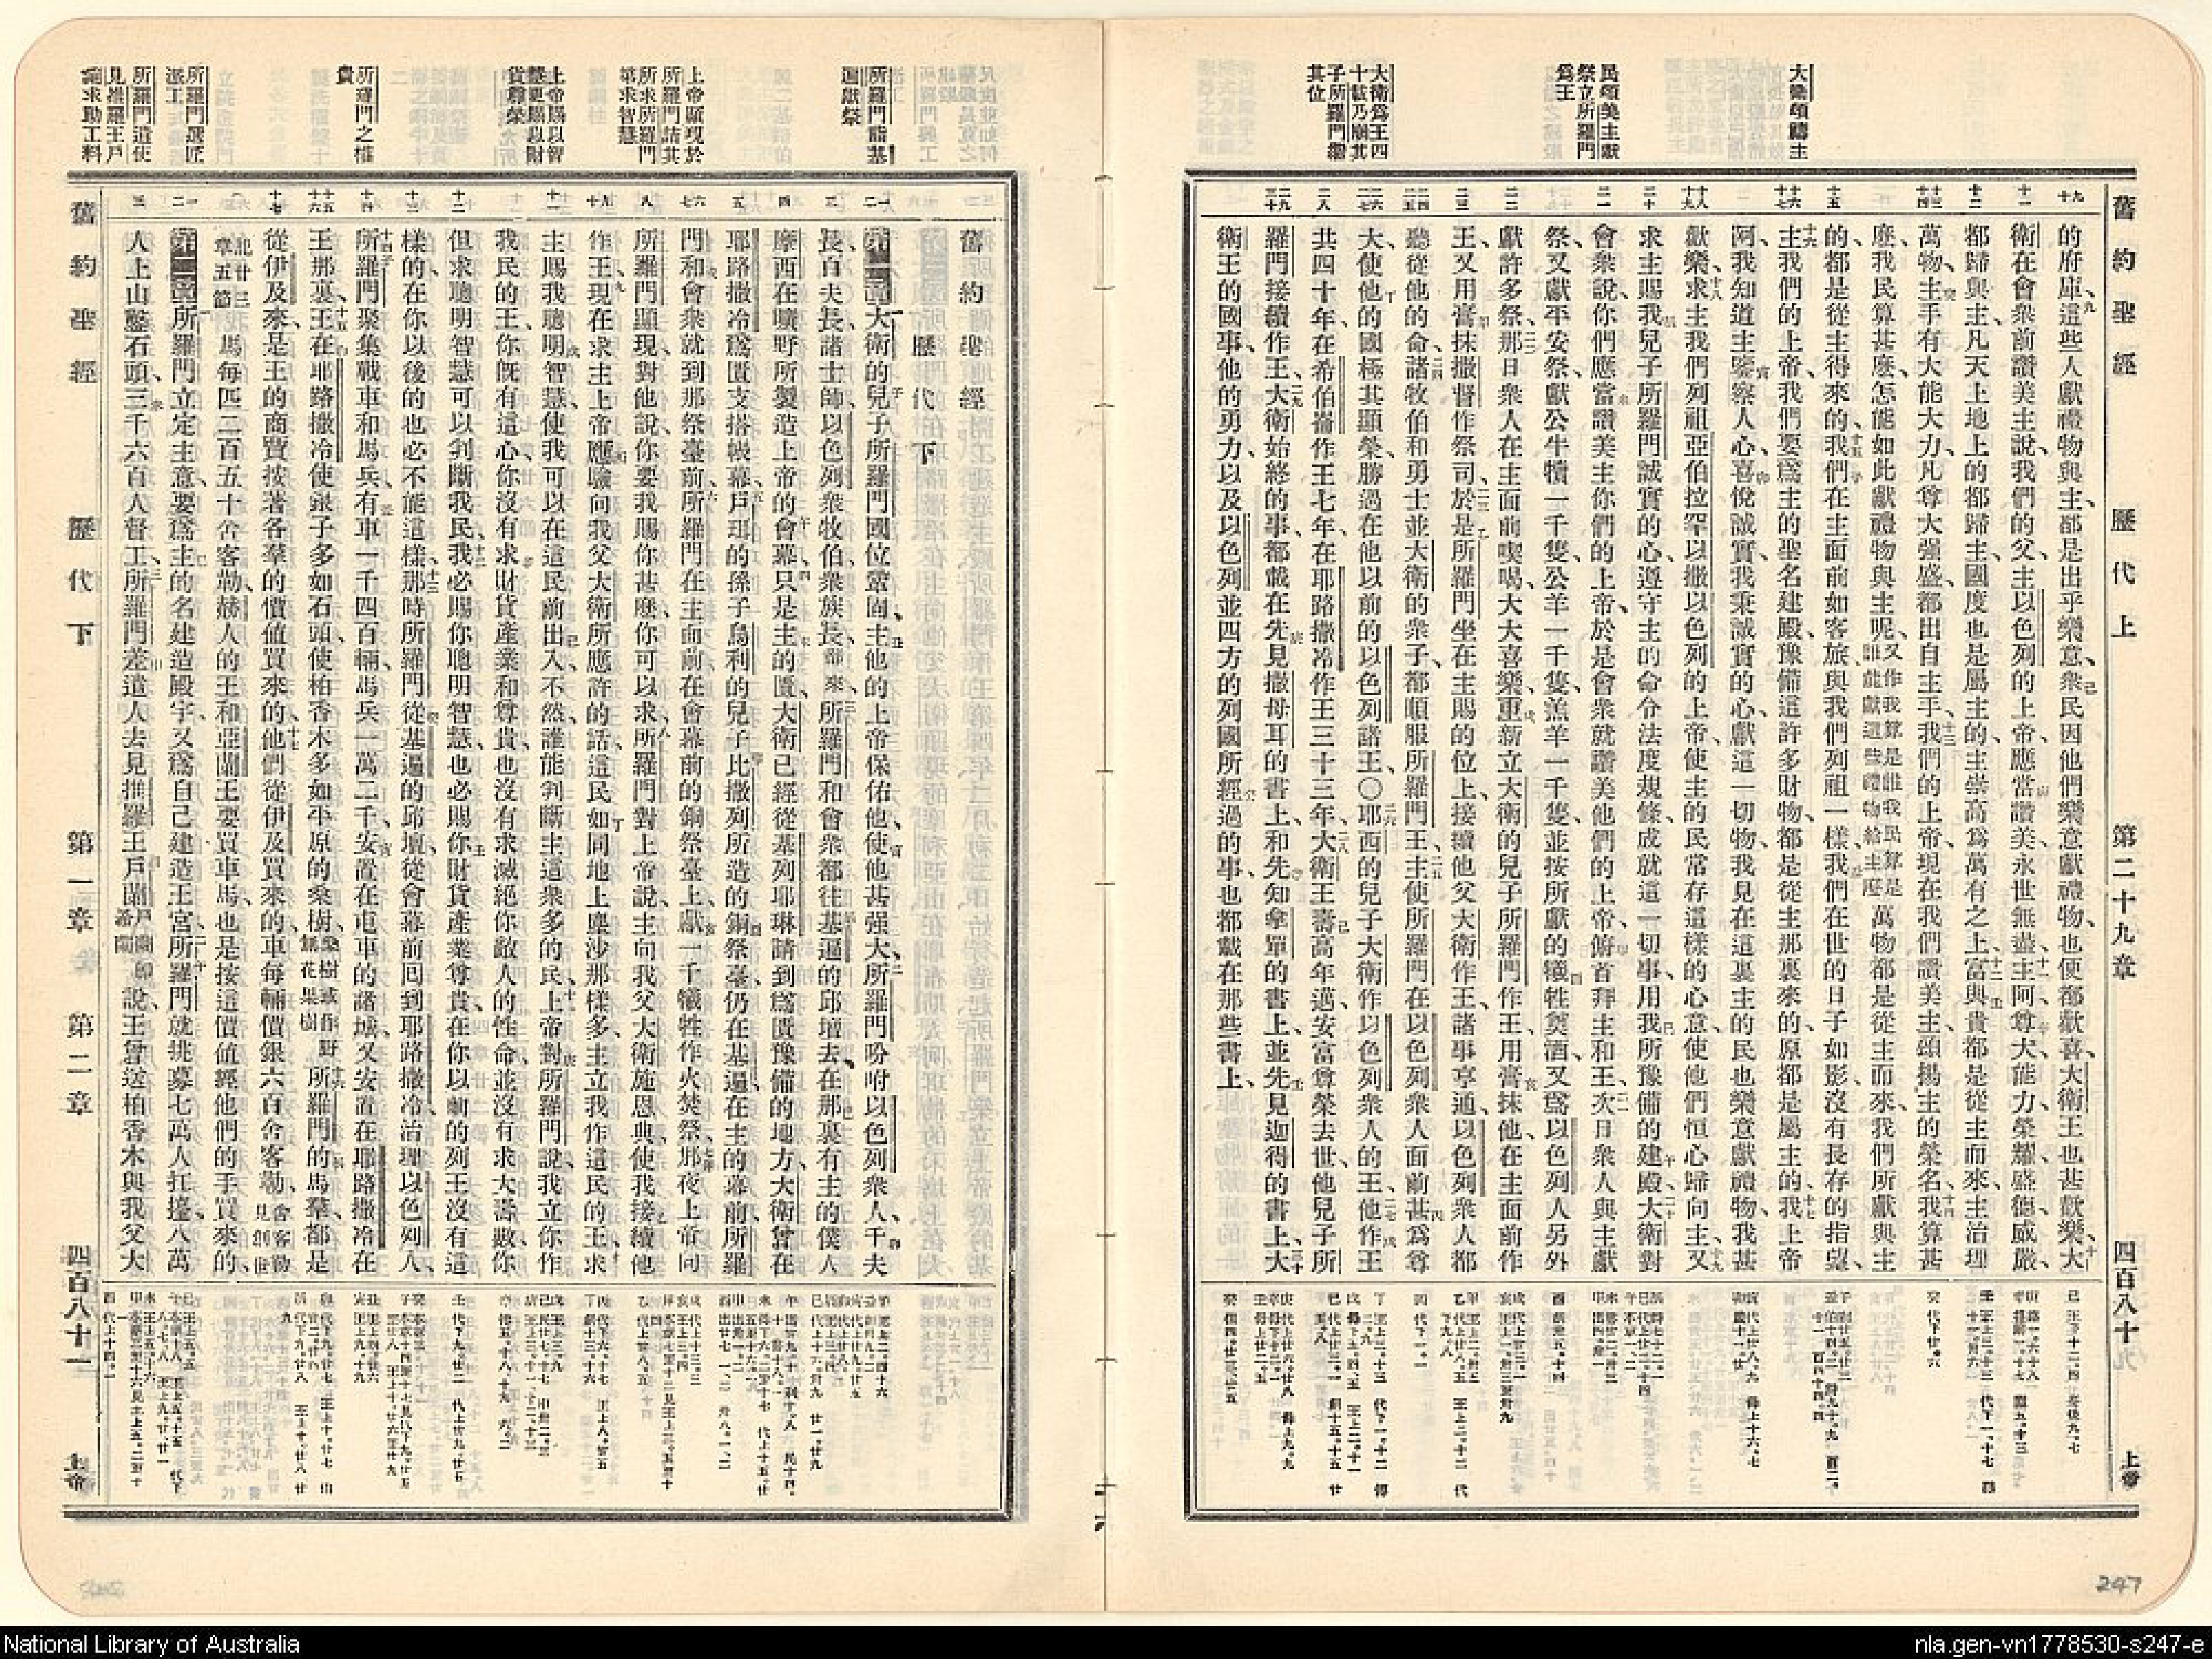 大衛頌禱主
民頌美主獻
祭立所羅門
爲王
大衛爲王四
十載乃崩其
子所羅門繼
其位
舊約聖經 歷代上 第二十九章 四百八十 上帝
的府庫、這些人獻禮物與主、都是出乎樂意、衆民因他們樂意獻禮物、也便都歡喜、大衛王也甚歡樂、大
衛在會衆前讚美主說、我們的父、主以色列的上帝、應當讚美、永世無盡、主阿、尊大、能力、榮耀、盛德、威嚴、
都歸與主、凡天上地上的都歸主、國度也是屬主的、主崇高爲萬有之上、富與貴都是從主而來、主治理
萬物、主手有大能大力、凡尊大强盛、都出自主手、我們的上帝、現在我們讚美主、頌揚主的榮名、我算甚
麼、我民算甚麼、怎能如此獻禮物與主呢、又作我算是誰我民算是誰能獻這些禮物給主麼萬物都是從主而來、我們所獻與主
的、都是從主得來的、我們在主面前如客旅、與我們列祖一樣、我們在世的日子如影、沒有長存的指望、
主我們的上帝、我們要爲主的聖名建殿、豫備這許多財物、都是從主那裏來的、原都是屬主的、我上帝
阿、我知道主鑒察人心、喜悅誠實、我秉誠實的心、獻這一切物、我見在這裏主的民、也樂意獻禮物、我甚
歡樂、求主我們列祖亞伯拉罕以撒以色列的上帝、使主的民常存這樣的心意、使他們恒心歸向主、又
求主賜我兒子所羅門誠實的心、遵守主的命令法度規條、成就這一切事、用我所豫備的建殿、大衛對
會衆說、你們應當讚美主你們的上帝、於是會衆就讚美他們的上帝、俯首拜主和王、次日衆人與主獻
祭、又獻平安祭、獻公牛犢一千隻、公羊一千隻、羔羊一千隻、並按所獻的犧牲奠酒、又爲以色列人另外
獻許多祭、那日衆人在主面前喫喝、大大喜樂、重新立大衛的兒子所羅門作王、用膏抹他、在主面前作
王、又用膏抹撒督作祭司、於是所羅門坐在主賜的位上、接續他父大衛作王、諸事亨通、以色列衆人都
聽從他的命、諸牧伯和勇士、並大衛的衆子、都順服所羅門王、主使所羅門在以色列衆人面前甚爲尊
大、使他的國極其顯榮、勝過在他以前的以色列諸王、〇耶西的兒子大衛作以色列衆人的王、他作王
共四十年、在希伯崙作王七年、在耶路撒冷作王三十三年、大衛王壽高年邁、安富尊榮去世、他兒子所
羅門接續作王、大衛始終的事、都載在先見撒母耳的書上、和先知拿單的書上、並先見迦得的書上、大
衛王的國事、他的勇力、以及以色列並四方的列國所經過的事、也都載在那些書上、
所羅門詣基
遍獻祭
上帝顯現於
所羅門諸其
所求所羅門
第求智慧
上帝賜以智
慧更賜以財
貨尊榮
所羅門之權
貴
所羅門選匠
遣工
所羅門遣使
見推羅王戶
蘭求助工料
舊約聖經
歷代下
第一章大衛的兒子所羅門國位鞏固、主他的上帝保佑他、使他甚强大、所羅門吩咐以色列衆人、千夫
長、百夫長、諸士師、以色列衆牧伯、衆族長、都來、所羅門和會衆都往基遍的邱壇去、在那裏有主的僕人
摩西在曠野所製造上帝的會幕、只是主的匱、大衛已經從基列耶琳請到爲匱豫備的地方、大衛曾在
耶路撒冷爲匱支搭帳幕、戶珥的孫子烏利的兒子比撒列所造的銅祭臺、仍在基遍、在主的幕前、所羅
門和會衆就到那祭臺前、所羅門在主面前、在會幕前的銅祭臺上、獻一千犧牲作火焚祭、那夜上帝向
所羅門顯現、對他說、你要我賜你甚麼、你可以求、所羅門對上帝說、主向我父大衛施恩典、使我接續他
作王、現在求主上帝應驗向我父大衛所應許的話、這民如同地上塵沙那樣多、主立我作這民的王、求
主賜我聰明智慧、使我可以在這民前出入、不然、誰能判斷主這衆多的民、上帝對所羅門說、我立你作
我民的王、你旣有這心、你沒有求財貨產業和尊貴、也沒有求滅絕你敵人的性命、並沒有求大壽數、你
但求聰明智慧、可以判斷我民、我必賜你聰明智慧、也必賜你財貨產業尊貴、在你以前的列王沒有這
樣的、在你以後的也必不能這樣、那時所羅門從基遍的邱壇、從會幕前、回到耶路撒冷、治理以色列人、
所羅門聚集戰車和馬兵、有車一千四百輛、馬兵一萬二千、安置在屯車的諸城、又安置在耶路撒冷、在
王那裏、王在耶路撒冷使銀子多如石頭、使柏香木多如平原的桑樹、桑樹或作野無花果樹所羅門的馬羣都是
從伊及來、是王的商賈按著各羣的價值買來的、他們從伊及買來的車、每輛價銀六百舍客勒、舍客勒見創世
記廿三章五節馬每四一百五十舍客勒、赫人的王和亞蘭王要買車馬、也是按這價值經他們的手買來的、
第二章所羅門立定主意、要爲主的名建造殿宇、又爲自己建造王宮、所羅門就挑募七萬人扛擡、八萬
人上山鑿石頭、三千六百人督工、所羅門差遣人去見推羅王戶蘭、戶蘭卽希蘭說、王曾送柏香木與我父大
舊約聖經 歷代下 第一章 第二章 四百八十一 上帝
247
National Library of Australia
nla.gen-vn1778530-s247-e